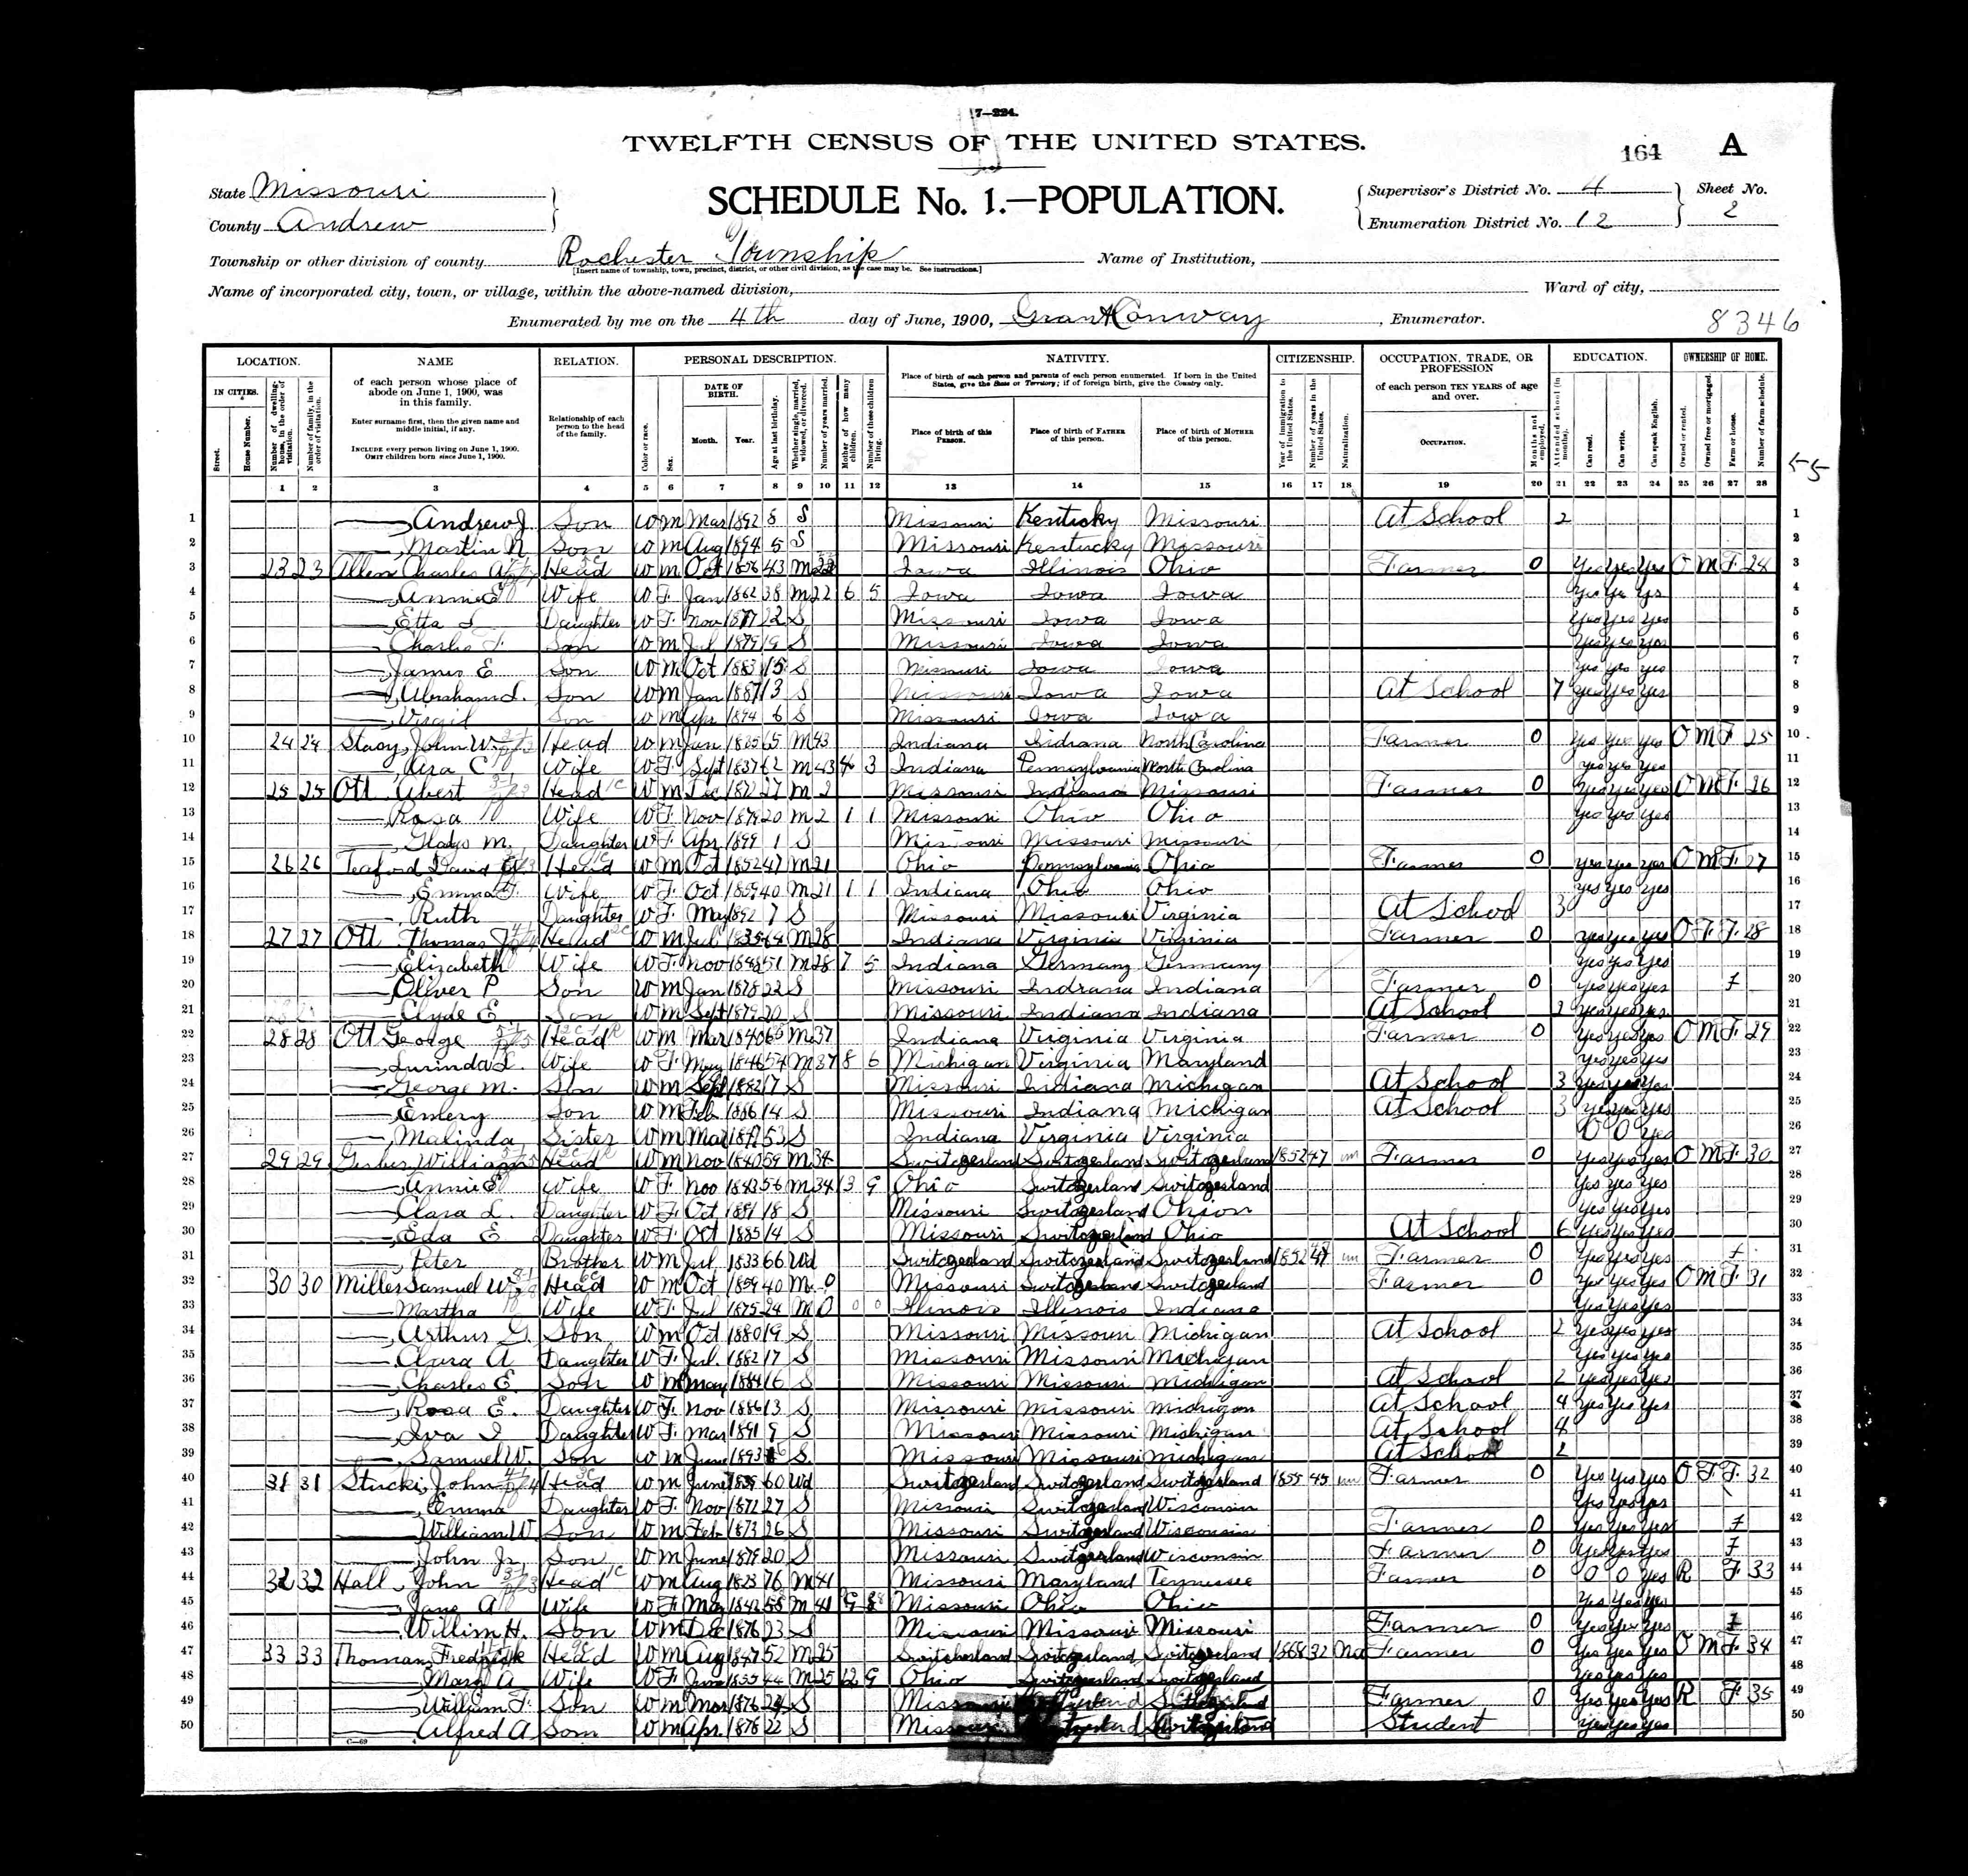 7—224.
TWELFTH CENSUS OF THE UNITED STATES.
164 A
State Missouri
County Andrew
SCHEDULE No. 1.—POPULATION.
Supervisor's District No. 4
Enumeration District No. 12
Sheet No. 2
Township or other division of county Rochester Township
[Insert name of township, town, precinct, district, or other civil division, as the case may be. See instructions.]
Name of Institution,
Name of incorporated city, town, or village, within the above-named division,
Ward of city,
Enumerated by me on the 4th day of June, 1900, Grant Conway, Enumerator.
8346
55
LOCATION. NAME RELATION. PERSONAL DESCRIPTION. NATIVITY. CITIZENSHIP. OCCUPATION, TRADE, OR PROFESSION EDUCATION. OWNERSHIP OF HOME.
IN CITIES.
Street.
House Number.
Number of dwelling-house, in the order of visitation.
Number of family, in the order of visitation.
of each person whose place of abode on June 1, 1900, was in this family.
Enter surname first, then the given name and middle initial, if any.
INCLUDE every person living on June 1, 1900.
OMIT children born since June 1, 1900.
Relationship of each person to the head of the family.
Color or race.
Sex.
DATE OF BIRTH.
Month. Year.
Age at last birthday.
Whether single, married, widowed, or divorced.
Number of years married.
Mother of how many children.
Number of these children living.
Place of birth of each person and parents of each person enumerated. If born in the United States, give the State or Territory; if of foreign birth, give the Country only.
Place of birth of this PERSON.
Place of birth of FATHER of this person.
Place of birth of MOTHER of this person.
Year of immigration to the United States.
Number of years in the United States.
Naturalization.
of each person TEN YEARS of age and over.
OCCUPATION.
Months not employed.
Attended school (in months).
Can read.
Can write.
Can speak English.
Owned or rented.
Owned free or mortgaged.
Farm or house.
Number of farm schedule.
1 2 3 4 5 6 7 8 9 10 11 12 13 14 15 16 17 18 19 20 21 22 23 24 25 26 27 28
1 Andrew J. Son W M Mar 1892 8 S Missouri Kentucky Missouri At School 2 1
2 Martin N. Son W M Aug 1894 5 S Missouri Kentucky Missouri 2
3 23 23 Allen Charles Head W M Oct 1856 43 M 22 Iowa Illinois Ohio Farmer 0 Yes Yes Yes O M F 24 3
4 Annie E Wife W F Jan 1862 38 M 22 6 5 Iowa Iowa Iowa Yes Yes Yes 4
5 Etta Daughter W F Nov 1877 22 S Missouri Iowa Iowa Yes Yes Yes 5
6 Charles F. Son W M Jul 19 S Missouri Iowa Iowa Yes Yes Yes 6
7 James E Son W M Oct 1883 15 S Missouri Iowa Iowa Yes Yes Yes 7
8 Abraham L. Son W M Jan 1887 13 S Missouri Iowa Iowa At School 7 Yes Yes Yes 8
9 Virgil Son W M Apr 1894 6 S Missouri Iowa Iowa 9
10 24 24 Stacy, John W. Head W M Jan 1835 65 M 43 Indiana Indiana North Carolina Farmer 0 Yes Yes Yes O M F 25 10
11 C Wife W F Sept 1837 62 M 43 4 3 Indiana Pennsylvania North Carolina Yes Yes Yes 11
12 25 25 Ott Albert Head W M Dec 1872 27 M 2 Missouri Indiana Missouri Farmer 0 Yes Yes Yes O M F 26 12
13 Rosa Wife W F Nov 1879 20 M 2 1 1 Missouri Ohio Ohio Yes Yes Yes 13
14 Gladys M. Daughter W F Apr 1899 1 S Missouri Missouri Missouri 14
15 26 26 Teaford David Head W M Oct 1852 47 M 21 Ohio Pennsylvania Ohio Farmer 0 Yes Yes Yes O M F 27 15
16 Emma Wife W F Oct 1859 40 M 21 1 1 Indiana Ohio Ohio Yes Yes Yes 16
17 Ruth Daughter W F May 1892 7 S Missouri Missouri Virginia At School 3 17
18 27 27 Ott Thomas J Head W M Jul 1835 64 M 28 Indiana Virginia Virginia Farmer 0 Yes Yes Yes O F F 28 18
19 Elizabeth Wife W F Nov 1848 51 M 28 7 5 Indiana Germany Germany Yes Yes Yes 19
20 Oliver P Son W M Jan 1878 22 S Missouri Indiana Indiana Farmer 0 Yes Yes Yes f 20
21 Clyde E Son W M Sept 1879 20 S Missouri Indiana Indiana At School 3 Yes Yes Yes 21
22 28 28 Ott George Head W M Mar 1840 M 37 Indiana Virginia Virginia Farmer 0 Yes Yes Yes O M F 29 22
23 Lurinda L. Wife W F May 1846 54 M 37 8 6 Michigan Virginia Maryland Yes Yes Yes 23
24 George M. Son W M Sept 1882 17 S Missouri Indiana Michigan At School 3 Yes Yes Yes 24
25 Emery Son W M Feb 1886 14 S Missouri Indiana Michigan At School 3 Yes Yes Yes 25
26 Malinda Sister W M Mar 53 S Indiana Virginia Virginia 0 0 Yes 26
27 29 29 Gerber William Head W M Nov 1840 59 M 34 Switzerland Switzerland Switzerland 1852 47 un Farmer 0 Yes Yes Yes O M F 30 27
28 Annie E Wife W F Nov 1843 56 M 34 13 9 Ohio Switzerland Switzerland Yes Yes Yes 28
29 Clara L. Daughter W F Oct 1881 18 S Missouri Switzerland Ohion Yes Yes Yes 29
30 Eda E Daughter W F Oct 1885 14 S Missouri Switzerland Ohio At School 6 Yes Yes Yes 30
31 Peter Brother W M Jul 1833 66 Wd Switzerland Switzerland Switzerland 1852 47 un Farmer 0 Yes Yes Yes f 31
32 30 30 Miller Samuel W Head W M Oct 1859 40 M 0 Missouri Switzerland Switzerland Farmer 0 Yes Yes Yes O M F 31 32
33 Martha Wife W F Jul 1875 24 M 0 0 0 Illinois Illinois Indiana Yes Yes Yes 33
34 Arthur G. Son W M Oct 1880 19 S Missouri Missouri Michigan At School 2 Yes Yes Yes 34
35 Clara A Daughter W F Jul. 1882 17 S Missouri Missouri Michigan Yes Yes Yes 35
36 Charles E. Son W M May 1884 16 S Missouri Missouri Michigan At School 2 Yes Yes Yes 36
37 Rosa E. Daughter W F Nov 1886 13 S Missouri Missouri Michigan At School 4 Yes Yes Yes 37
38 Iva I Daughter W F Mar 1891 9 S Missouri Missouri Michigan At School 4 38
39 Samuel W. Son W M June 1893 6 S Missouri Missouri Michigan At School 2 39
40 31 31 Stucki, John Head W M June 1839 60 Wd Switzerland Switzerland Switzerland 1855 45 un Farmer 0 Yes Yes Yes O F F 32 40
41 Emma Daughter W F Nov 1872 27 S Missouri Switzerland Wisconsin Yes Yes Yes 41
42 William W. Son W M Feb 1873 26 S Missouri Switzerland Wisconsin Farmer 0 Yes Yes Yes f 42
43 John Jr. Son W M June 1879 20 S Missouri Switzerland Wisconsin Farmer 0 Yes Yes Yes f 43
44 32 32 Hall, John Head W M Aug 1823 76 M 41 Missouri Maryland Tennessee Farmer 0 0 0 Yes R F 33 44
45 Jane A Wife W F Mar 1842 58 M 41 9 8 Missouri Ohio Ohio Yes Yes Yes 45
46 Willim H. Son W M Dec 1876 23 S Missouri Missouri Missouri Farmer 0 Yes Yes Yes f 46
47 33 33 Thoman, Fredrick Head W M Aug 1847 52 M 25 Switzerland Switzerland Switzerland 1868 32 Na Farmer 0 Yes Yes Yes O M F 34 47
48 Mary A Wife W F June 1855 44 M 25 12 9 Ohio Switzerland Switzerland Yes Yes Yes 48
49 William F. Son W M Mar 1876 24 S Missouri Switzerland Farmer 0 Yes Yes Yes R F 35 49
50 Alfred A Son W M Apr. 1878 22 S Missouri Switzerland Switzerland Student Yes Yes Yes 50
C—69